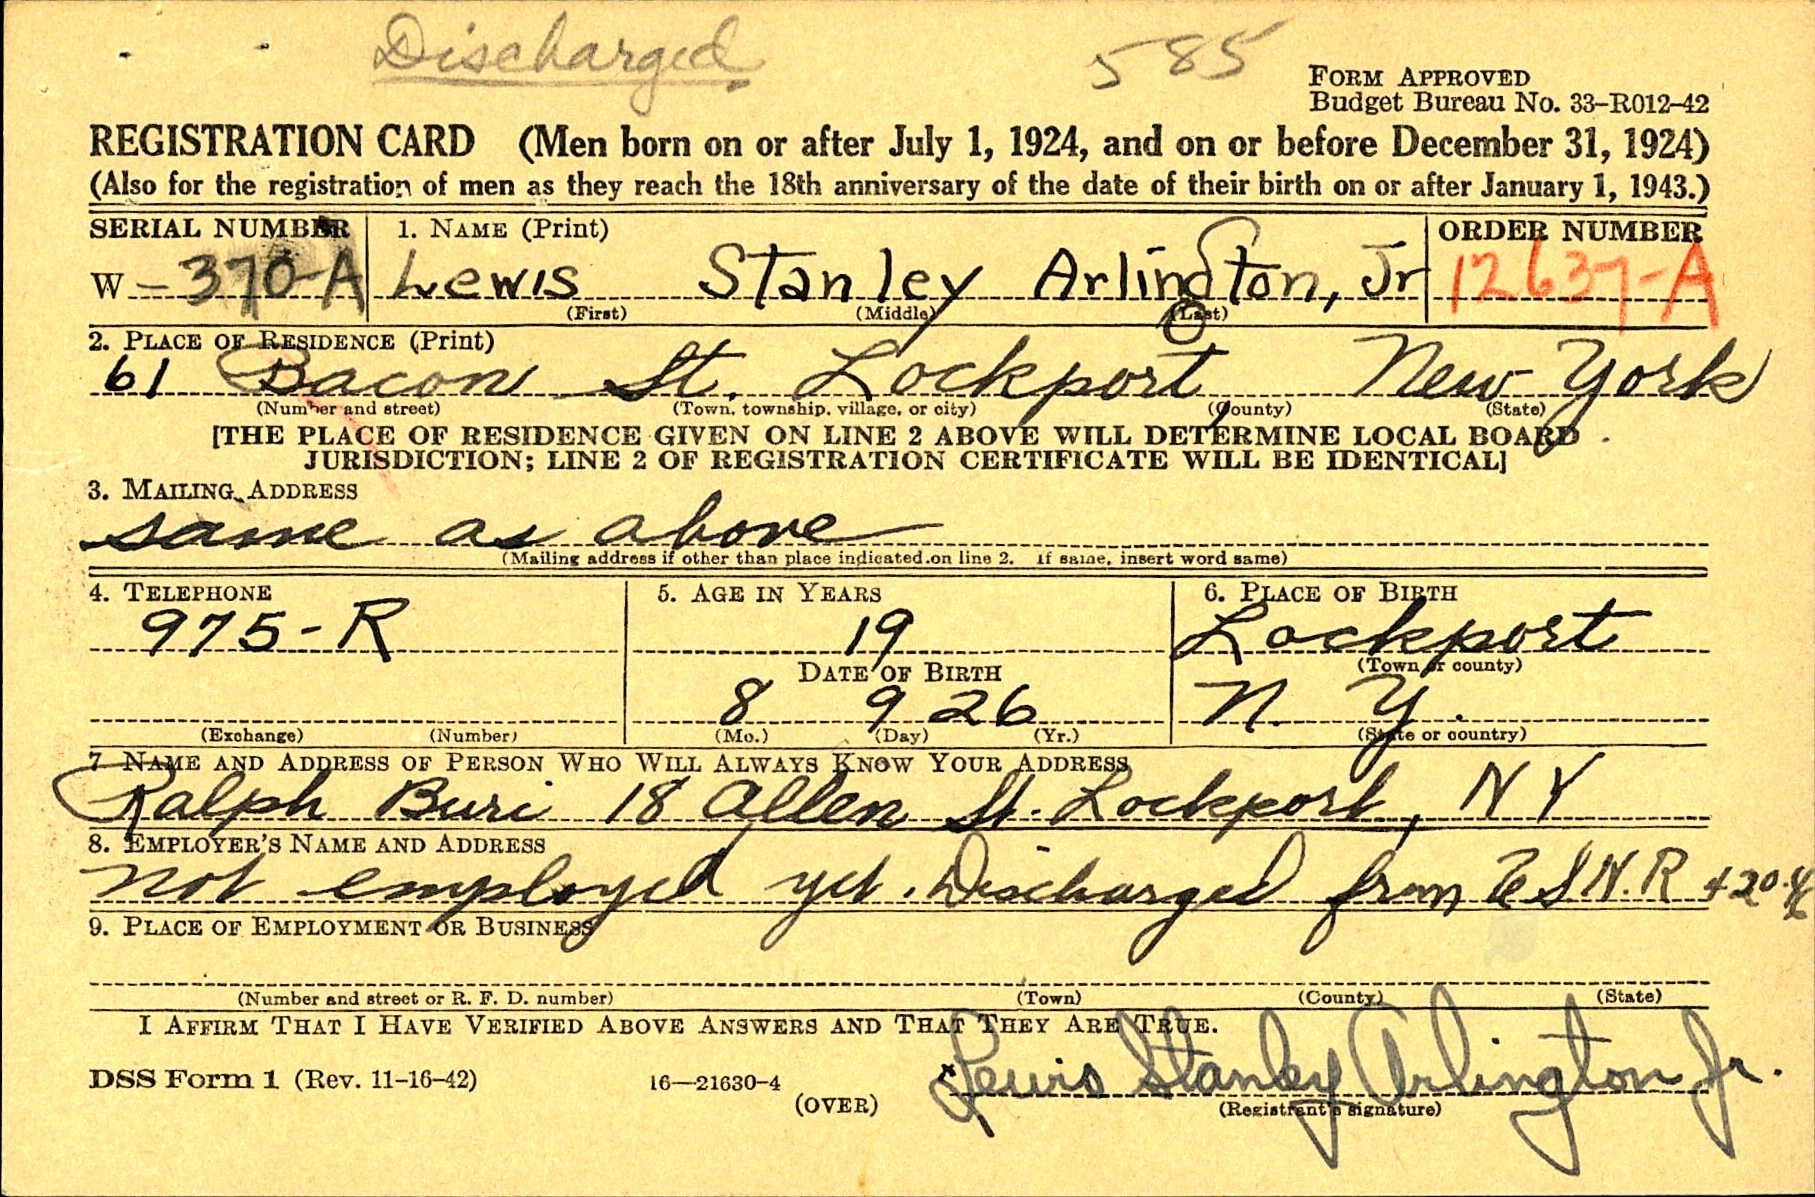 Discharged 585
FORM APPROVED
Budget Bureau No. 33–R012–42
REGISTRATION CARD (Men born on or after July 1, 1924, and on or before December 31, 1924)
(Also for the registration of men as they reach the 18th anniversary of the date of their birth on or after January 1, 1943.)
SERIAL NUMBER 1. NAME (Print) ORDER NUMBER
W – 370-A Lewis Stanley Arlington, Jr 12637-A
(First) (Middle) (Last)
2. PLACE OF RESIDENCE (Print)
61 Bacon St. Lockport, New York
(Number and street) (Town, township, village, or city) (County) (State)
[THE PLACE OF RESIDENCE GIVEN ON LINE 2 ABOVE WILL DETERMINE LOCAL BOARD
JURISDICTION; LINE 2 OF REGISTRATION CERTIFICATE WILL BE IDENTICAL]
3. MAILING ADDRESS
same as above
(Mailing address if other than place indicated on line 2. If same, insert word same)
4. TELEPHONE 5. AGE IN YEARS 6. PLACE OF BIRTH
975-R 19 Lockport
DATE OF BIRTH (Town or county)
8 9 26 N. Y.
(Exchange) (Number) (Mo.) (Day) (Yr.) (State or country)
7 NAME AND ADDRESS OF PERSON WHO WILL ALWAYS KNOW YOUR ADDRESS
Ralph Buri 18 Allen St. Lockport, NY
8. EMPLOYER'S NAME AND ADDRESS
not employed yet. Discharged from U S N. R
9. PLACE OF EMPLOYMENT OR BUSINESS
(Number and street or R. F. D. number) (Town) (County) (State)
I AFFIRM THAT I HAVE VERIFIED ABOVE ANSWERS AND THAT THEY ARE TRUE.
DSS Form 1 (Rev. 11–16–42) 16—21630-4 Lewis Stanley Arlington Jr.
(OVER) (Registrant's signature)